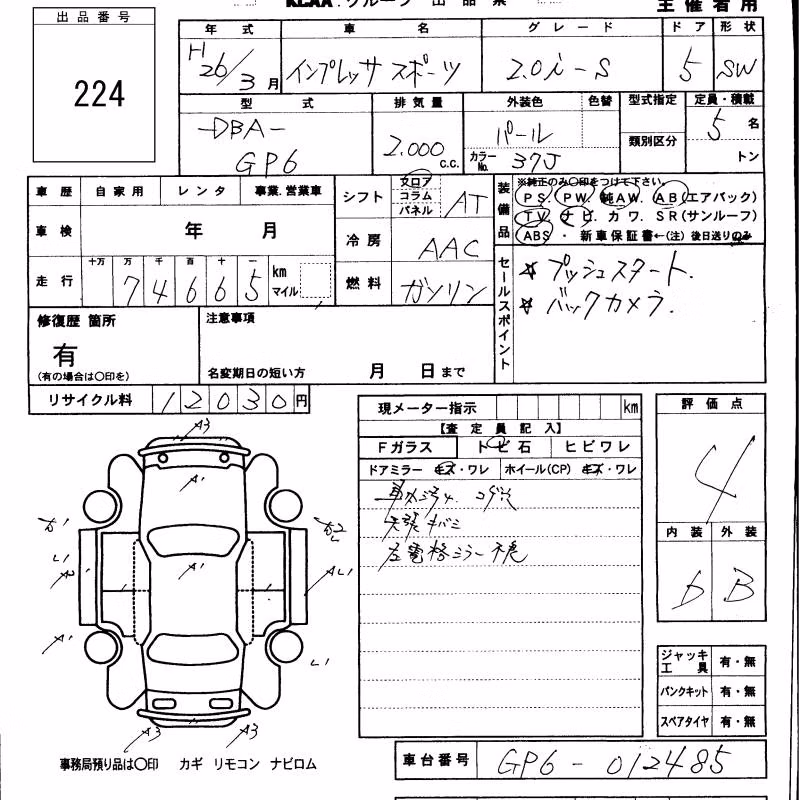 KCAA.グループ 出品票
主催者用
出品番号
224
年式 車名 グレード ドア 形状
H26/3月 インプレッサ スポーツ 2.0i-S 5 SW
型式 排気量 外装色 色替 型式指定 定員・積載
DBA- 2.000 c.c. パール 類別区分 5 名
GP6 カラーNo. 37J トン
車歴 自家用 レンタ 事業.営業車
車検 年 月
走行 十万 万 千 百 十 一
74665 km マイル
シフト フロア コラム パネル AT
冷房 AAC
燃料 ガソリン
装備品
※純正のみ〇印をつけて下さい。
PS. PW. 純AW. AB(エアバック)
TV. ナビ. カワ. SR(サンルーフ)
ABS ・ 新車保証書←(注) 後日送りのみ
セールスポイント
☆ プッシュスタート.
☆ バックカメラ.
修復歴 箇所
有
(有の場合は〇印を)
注意事項
名変期日の短い方 月 日まで
リサイクル料 12030円
現メーター指示 km
【査定員記入】
Fガラス トビ石 ヒビワレ
ドアミラー キズ・ワレ ホイール(CP) キズ・ワレ
左電格ミラー不良
評価点
4
内装 外装
D B
A3
A1
A1
A2
A1
A1
L1
L1
A3
A3
ジャッキ 工具 有・無
パンクキット 有・無
スペアタイヤ 有・無
事務局預り品は〇印 カギ リモコン ナビロム
車台番号 GP6-012485